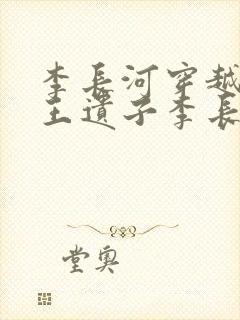 李長河穿越
王遺子李長
堂奥